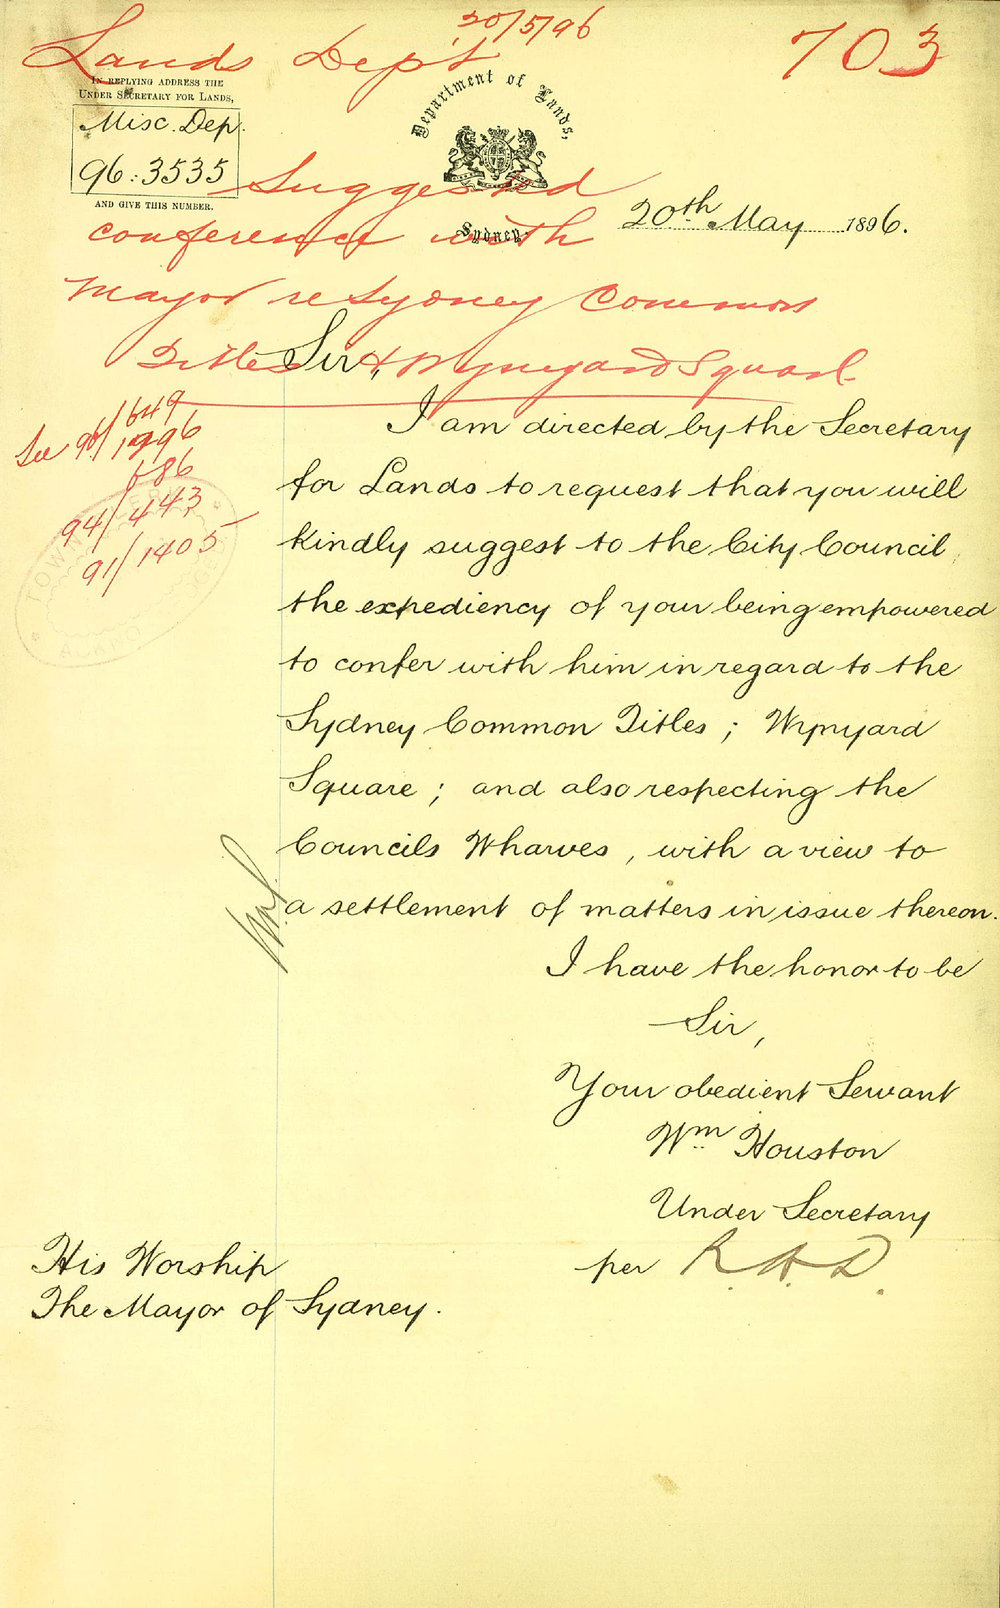 20/5/96
Lands Dept
703
IN REPLYING ADDRESS THE
UNDER SECRETARY FOR LANDS,
Misc. Dep.
96:3535
AND GIVE THIS NUMBER.
Department of Lands,
Sydney,
20th May 1896.
Suggested
conference with
Mayor re Sydney Common
Titles & Wynyard Square
See 96/649
1996
686
94/443
91/1405
TOWN
Sir,
I am directed by the Secretary
for Lands to request that you will
kindly suggest to the City Council
the expediency of your being empowered
to confer with him in regard to the
Sydney Common Titles; Wynyard
Square; and also respecting the
Councils Wharves, with a view to
a settlement of matters in issue thereon.
I have the honor to be
Sir,
Your obedient Servant
Wm Houston
Under Secretary
per R.H.D.
His Worship
The Mayor of Sydney.